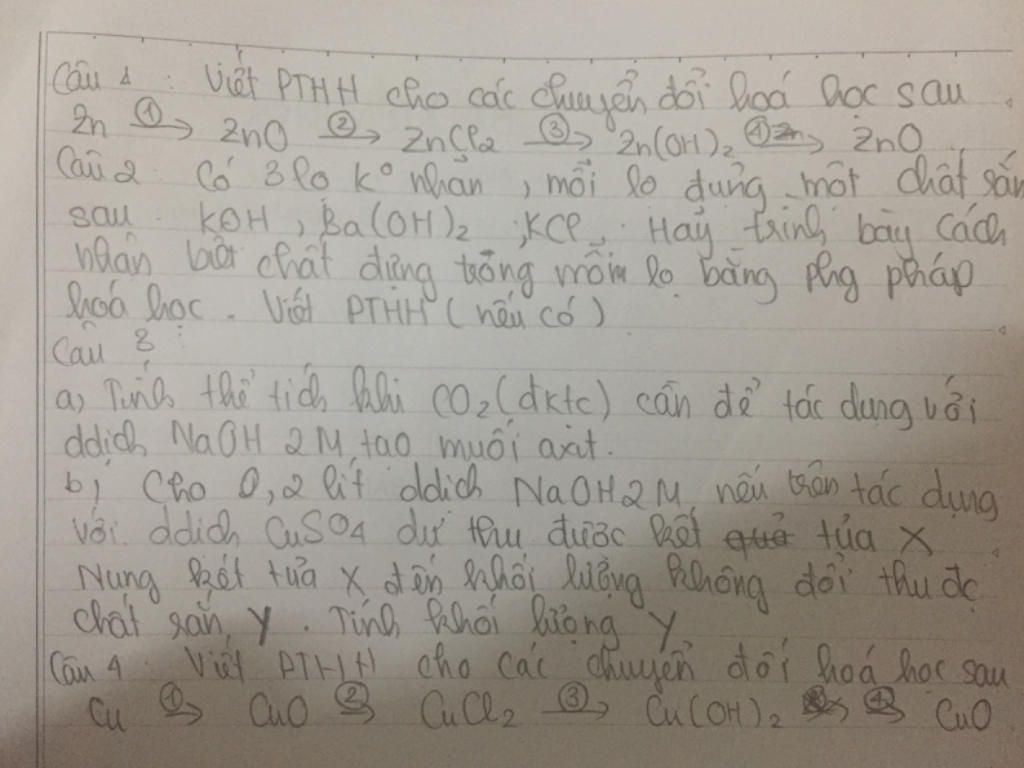 Câu 1 : Viết PTHH cho các chuyển đổi hoá học sau
Zn ①→ ZnO ②→ ZnCl₂ ③→ Zn(OH)₂ ④→ ZnO
Câu 2 Có 3 lọ k° nhản, mỗi lọ đựng một chất rắn
sau KOH, Ba(OH)₂ ; KCl. Hảy trình bày cách
nhận biết chất đựng trong mỗi lọ bằng phg pháp
hoá học. Viết PTHH (nếu có)
Câu 3
a) Tính thể tích khí CO₂ (đktc) cần để tác dụng với
ddịch NaOH 2M tạo muối axit.
b) Cho 0,2 lít ddịch NaOH 2M nếu trên tác dụng
với ddịch CuSO₄ dư thu được kết tủa X
Nung kết tủa X đến khối lượng không đổi thu đc
chất rắn Y. Tính khối lượng Y
Câu 4 : Viết PTHH cho các chuyển đổi hoá học sau
Cu ①→ CuO ②→ CuCl₂ ③→ Cu(OH)₂ ④→ CuO